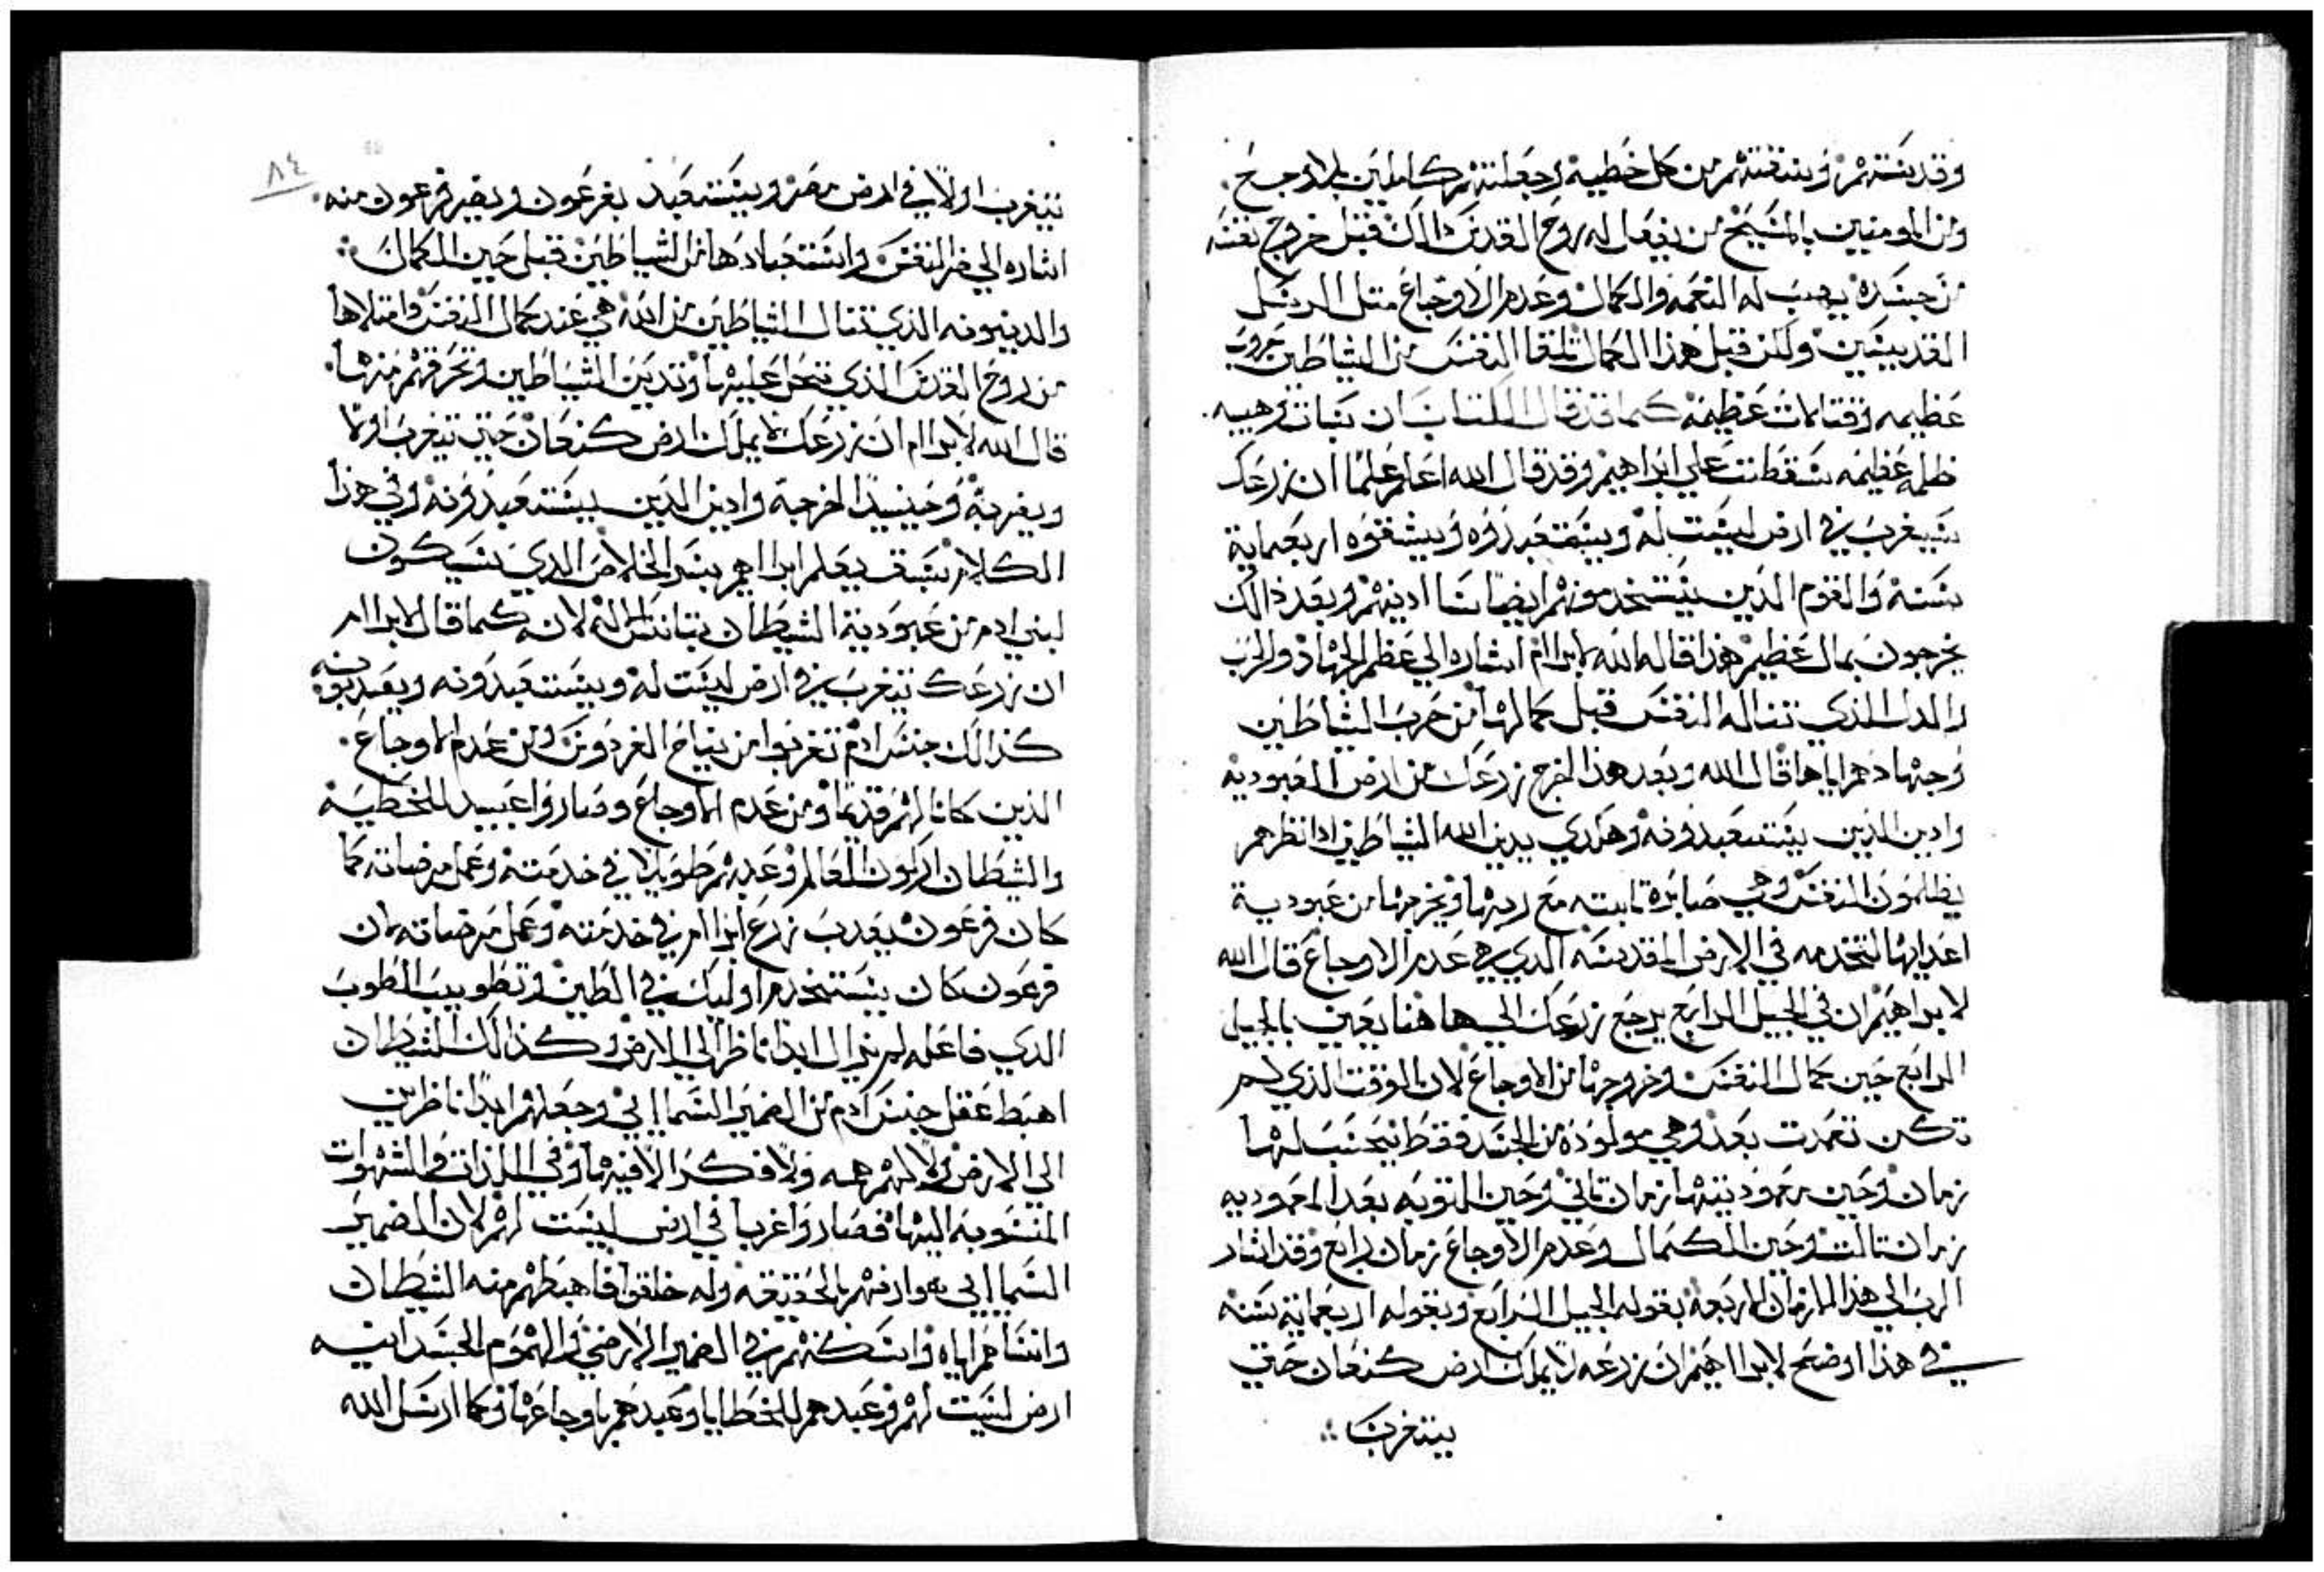 وقدستهم ونقتهم من كل خطيه وجعلتهم كاملين بلا وجع
ومن المومنين بالمسيح من يفعل له روح القدس ذالك قبل خروج نفسه
من جسده يهب له النعمه والكمال وعدم الاوجاع متل الرسل
القديسين ولكن قبل هذا الكمال تلقا النفس من الشياطين حروب
عظيمه وقتالات عظيمه كما قد قال الكتاب ان تبات رهيبه
ظلمه عظيمه سقطت على ابراهيم وقد قال الله اعلم علما ان زرعك
سيغرب في ارض ليست له ويستعبدوه ويشقوه اربعماية
سنه والقوم الذين يستخدمونهم ايضا انا ادينهم وبعد ذالك
يخرجون بمال عظيم هذا قاله الله لابرام اشاره الي عظم الجهاد والحرب
والدل الذي تناله النفس قبل كمالها من حرب الشياطين
وجهادهم اياها قال الله وبعد هذا اخرج زرعك من ارض العبوديه
وادين الذين يستعبدونه وهكدي يدين الله الشياطين ادا نظرهم
يظلمون النفس وهي صابره تابته مع ربها ويخرجها من عبودية
اعدايها لتخدمه في الارض المقدسه الدي هي عدم الاوجاع قال الله
لابراهيم ان في الجيل الرابع يرجع زرعك الي هاهنا يعني بالجيل
الرابع حين كمال النفس وخروجها من الاوجاع لان الوقت الذي لم
تكن تعمدت بعد وهي مولوده من الجسد فقط يحسب لها
زمان وحين معموديتها زمان تاني وحين التوبه بعد المعموديه
زمان تالت وحين الكمال وعدم الاوجاع زمان رابع وقد اشار
الرب الي هذا الازمان الاربعه بقوله الجيل الرابع وبقوله اربعماية سنه
في هذا اوضح لابراهيم ان زرعه لا يملك ارض كنعان حتي
يتغرب
٨٤
يتغرب اولا في ارض مصر ويستعبد بفرعون ويضر فرعون منه
اشاره الي ضر النفس واستعبادها من الشياطين قبل حين الكمال
والدينونه الذي تنال الشياطين من الله هي عند كمال النفس وامتلاها
من روح القدس الذي تحل عليها وتدين الشياطين وتحرقهم منها
قال الله لابرام ان زرعك لا يملك ارض كنعان حتي يتغرب اولا
وبغربة وحينيد اخرجه وادين الدين يستعبدونه وفي هذا
الكلام سبق يعلم ابراهيم بسر الخلاص الدي سيكون
لبني ادم من عبودية الشيطان بتانس الله لانه كما قال لابرام
ان زرعك يتغرب في ارض ليست له ويستعبدونه ويعدبونه
كذالك جنس ادم تغربوا من نياح الفردوس ومن عدم الاوجاع
الذين كانا لهم قديما ومن عدم الاوجاع وصاروا عبيد للخطية
والشيطان اركون العالم وعدبهم طويلا في خدمته وعمل مرضاته كما
كان فرعون يعدب زرع ابرام في خدمته وعمل مرضاته لان
فرعون كان يستخدم اوليك في الطين وتطويب الطوب
الدي فاعله لم يزال ابدا ناظر الي الارض وكذالك الشيطان
اهبط عقل جنس ادم من الضمير السماايي وجعلهم ابدا ناظرين
الي الارض ولا لهم همه ولا فكر الا فيها وفي اللذات والشهوات
المنسوبه اليها فصاروا غربا في ارض ليست لهم لان الضمير
السماايي هو ارضهم بالحقيقه وله خلقوا فاهبطهم منه الشيطان
وانساهم اياه واسكنهم في الضمير الارضي والهموم الجسدانيه
ارض ليست لهم وعبدهم للخطايا وعبدهم باوجاعها وكما ارسل الله